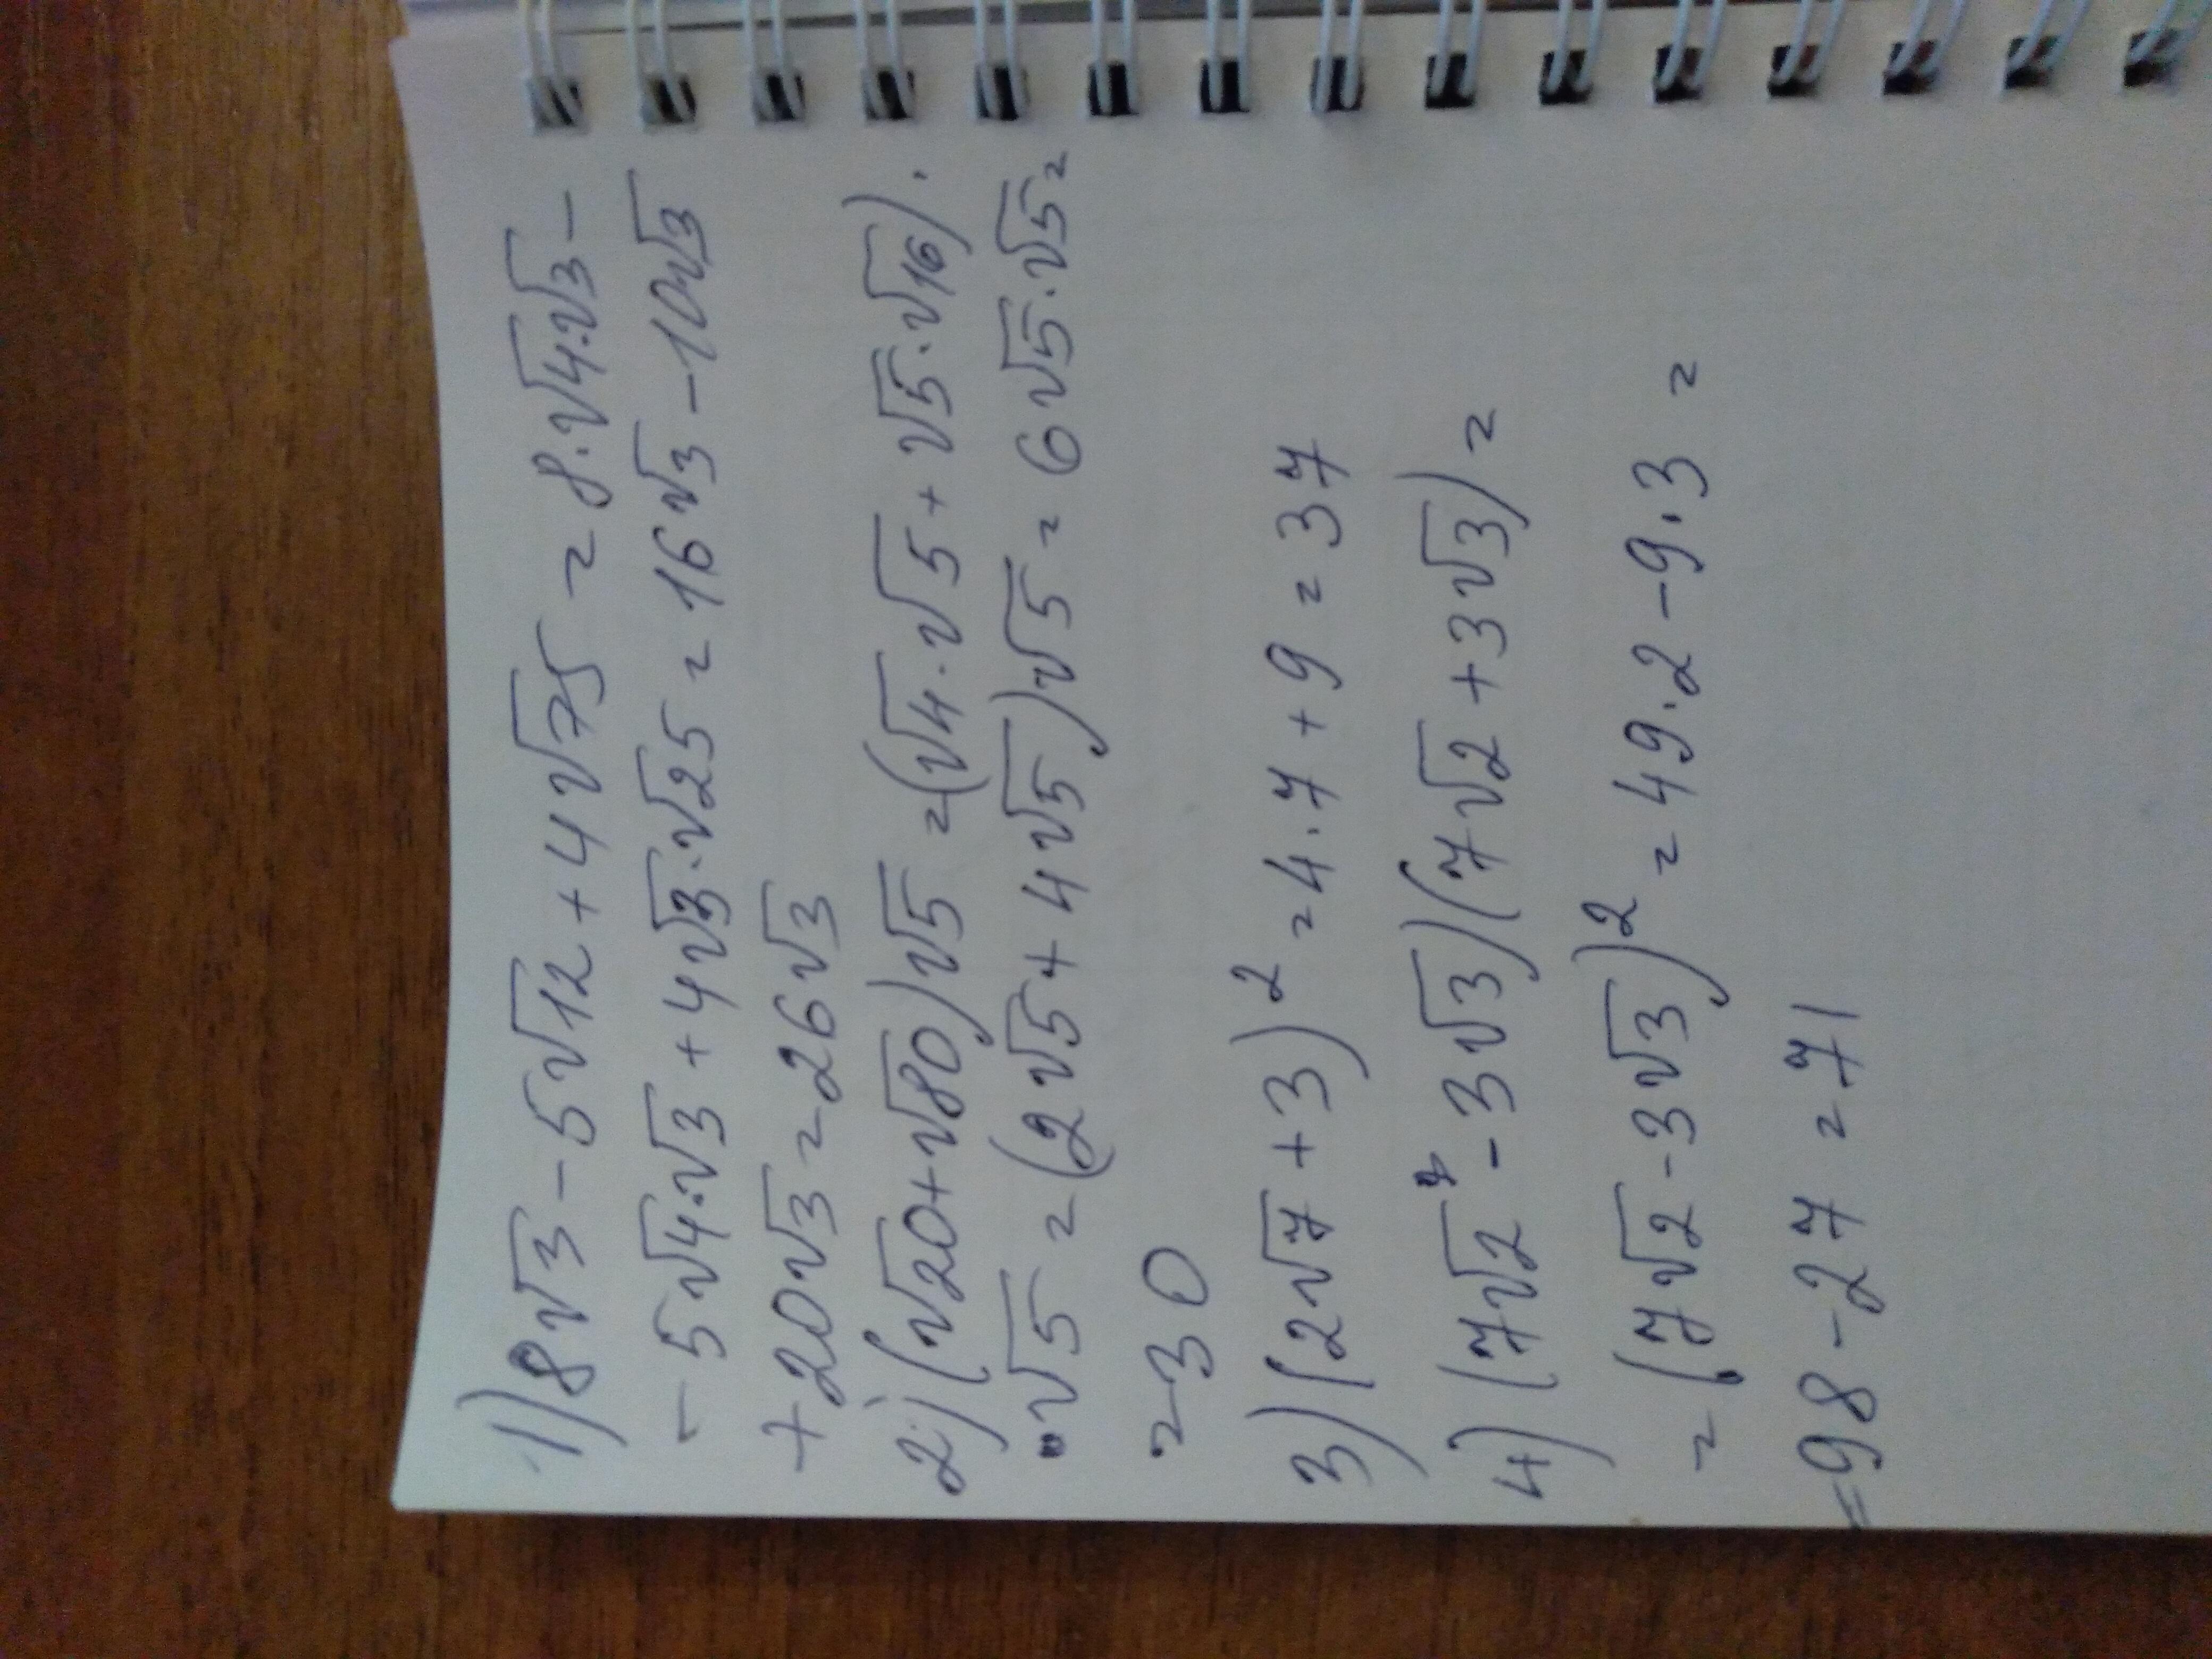 1) 8√3 - 5√12 + 4√75 = 8·√4·√3 -
- 5√4·√3 + 4√3·√25 = 16√3 - 10√3
+ 20√3 = 26√3
2) (√20 + √80)√5 = (√4·√5 + √5·√16)·
·√5 = (2√5 + 4√5)√5 = 6√5·√5 =
= 30
3) (2√7 + 3)² = 4·7 + 9 = 37
4) (7√2 - 3√3)(7√2 + 3√3) =
= (7√2 - 3√3)² = 49·2 - 9·3 =
= 98 - 27 = 71